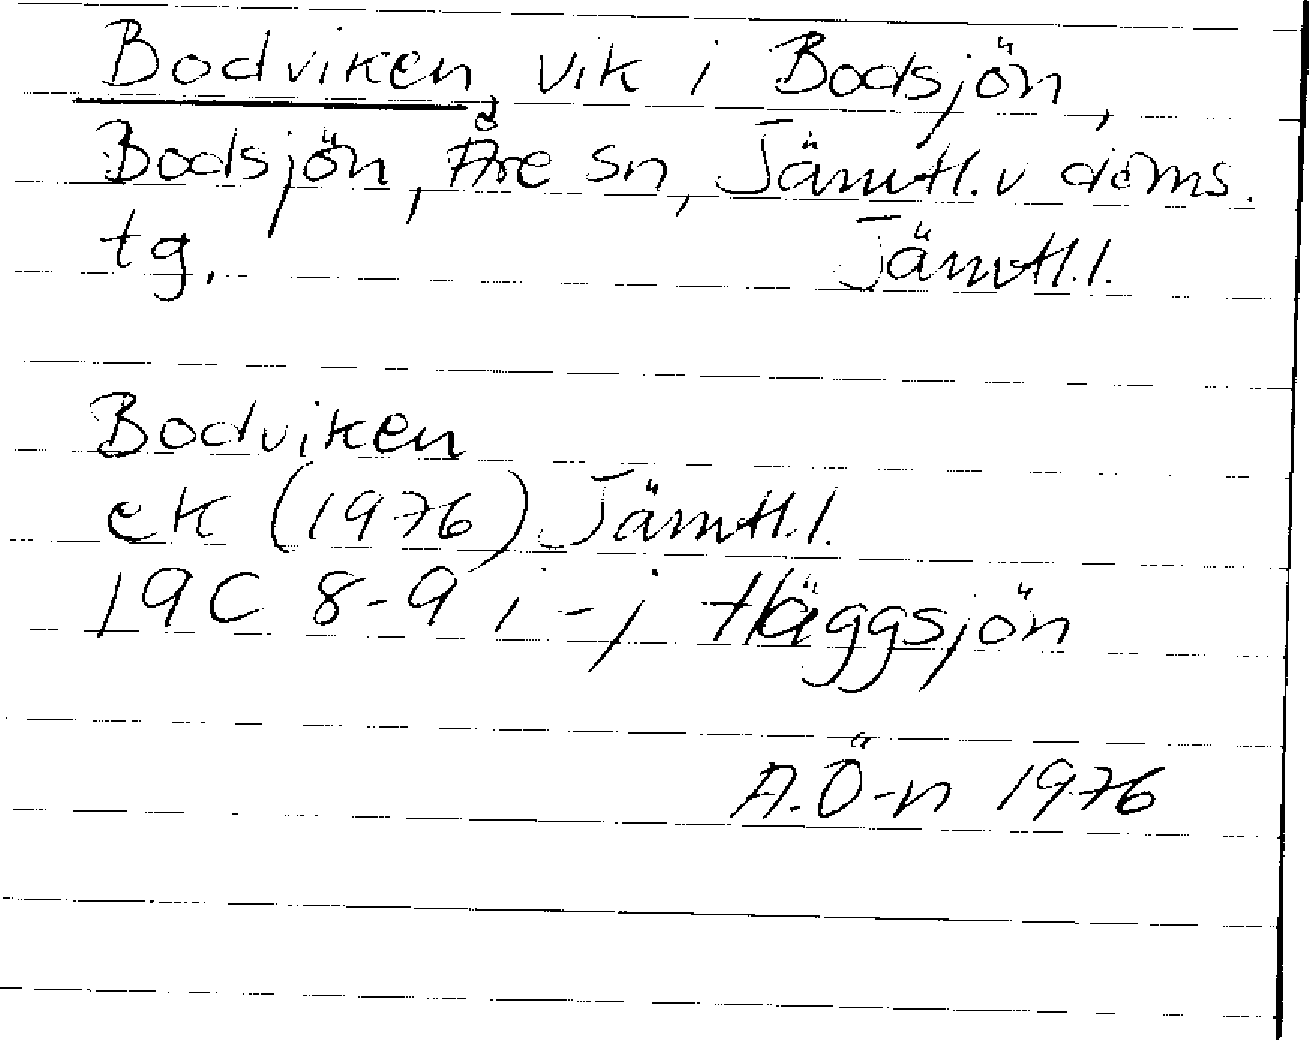 Bodviken vik i Bodsjön,
Bodsjön, Åre sn, Jämtl. v doms.
tg. Jämtl.l.
Bodviken
ek (1976) Jämtl.l.
19C 8-9 i-j Häggsjön
A.Ö-n 1976